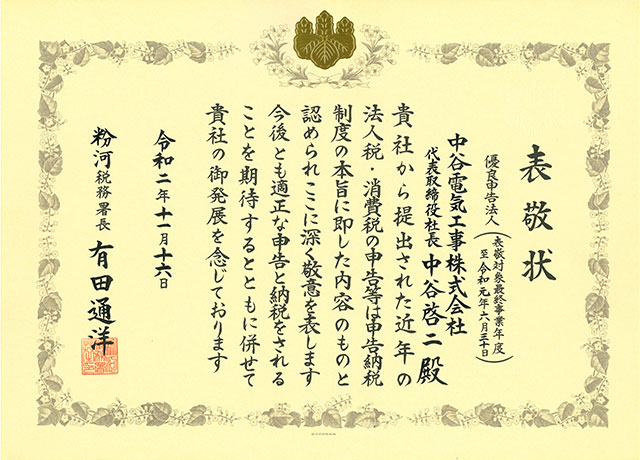 表敬状
優良申告法人（表敬対象最終事業年度 至令和元年六月三十日）
中谷電気工事株式会社
代表取締役社長 中谷啓二殿
貴社から提出された近年の
法人税・消費税の申告等は申告納税
制度の本旨に即した内容のものと
認められここに深く敬意を表します
今後とも適正な申告と納税をされる
ことを期待するとともに併せて
貴社の御発展を念じております
令和二年十一月十六日
粉河税務署長 有田通洋